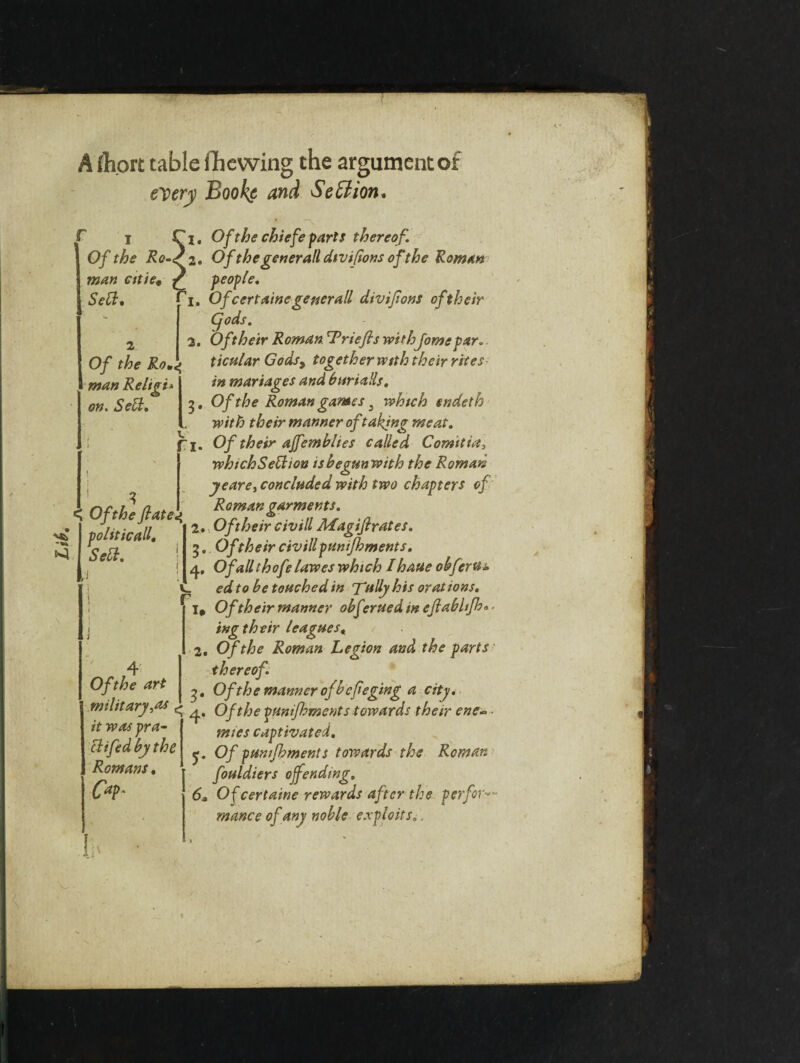 A ſhort table ſhewing the argument of
every Booke and Section.
Lib.
1
Of the Ro-
man citie.
Sect.
1. Of the chiefe parts thereof.
2. Of the generall diviſions of the Roman
people.
2
Of the Ro-
man Religi-
on. Sect.
1. Of certaine generall diviſions of their
Gods.
2. Of their Roman Prieſts with ſome par-
ticular Gods, together with their rites
in mariages and burialls.
3. Of the Roman games, which endeth
with their manner of taking meat.
3
Of the ſtate
politicall.
Sect.
1. Of their aſſemblies called Comitia,
which Section is begun with the Roman
yeare, concluded with two chapters of
Roman garments.
2. Of their civill Magiſtrates.
3. Of their civill puniſhments.
4. Of all thoſe lawes which I haue obſeru-
ed to be touched in Tully his orations.
4
Of the art
military, as
it was pra-
ctiſed by the
Romans.
Cap.
1. Of their manner obſerued in eſtabliſh-
ing their leagues.
2. Of the Roman Legion and the parts
thereof.
3. Of the manner of beſieging a city.
4. Of the puniſhments towards their ene-
mies captivated.
5. Of puniſhments towards the Roman
ſouldiers offending.
6. Of certaine rewards after the perfor-
mance of any noble exploits.